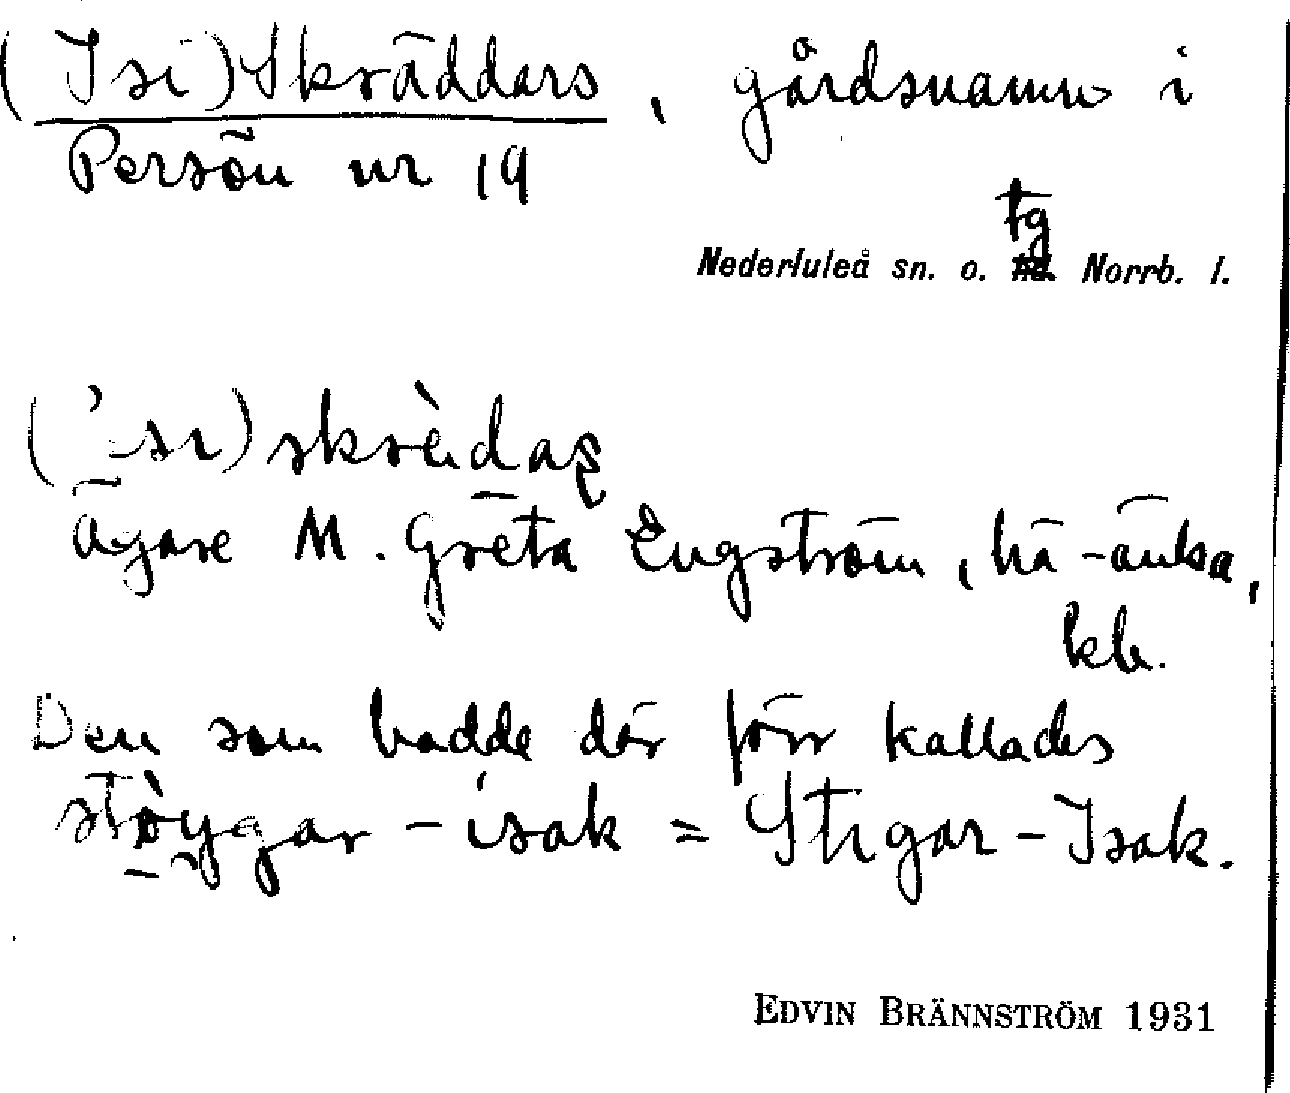 (Isi)Skräddars, gårdsnamn i
Persön nr 19
tg
Nederluleå sn. o. Norrb. l.
skrèdaş
ägare M. Greta Engström, hä-änka,
Den som bodde där förr kallades
stòygar - isak = Stigar-Isak.
EDVIN BRÄNNSTRÖM 1931